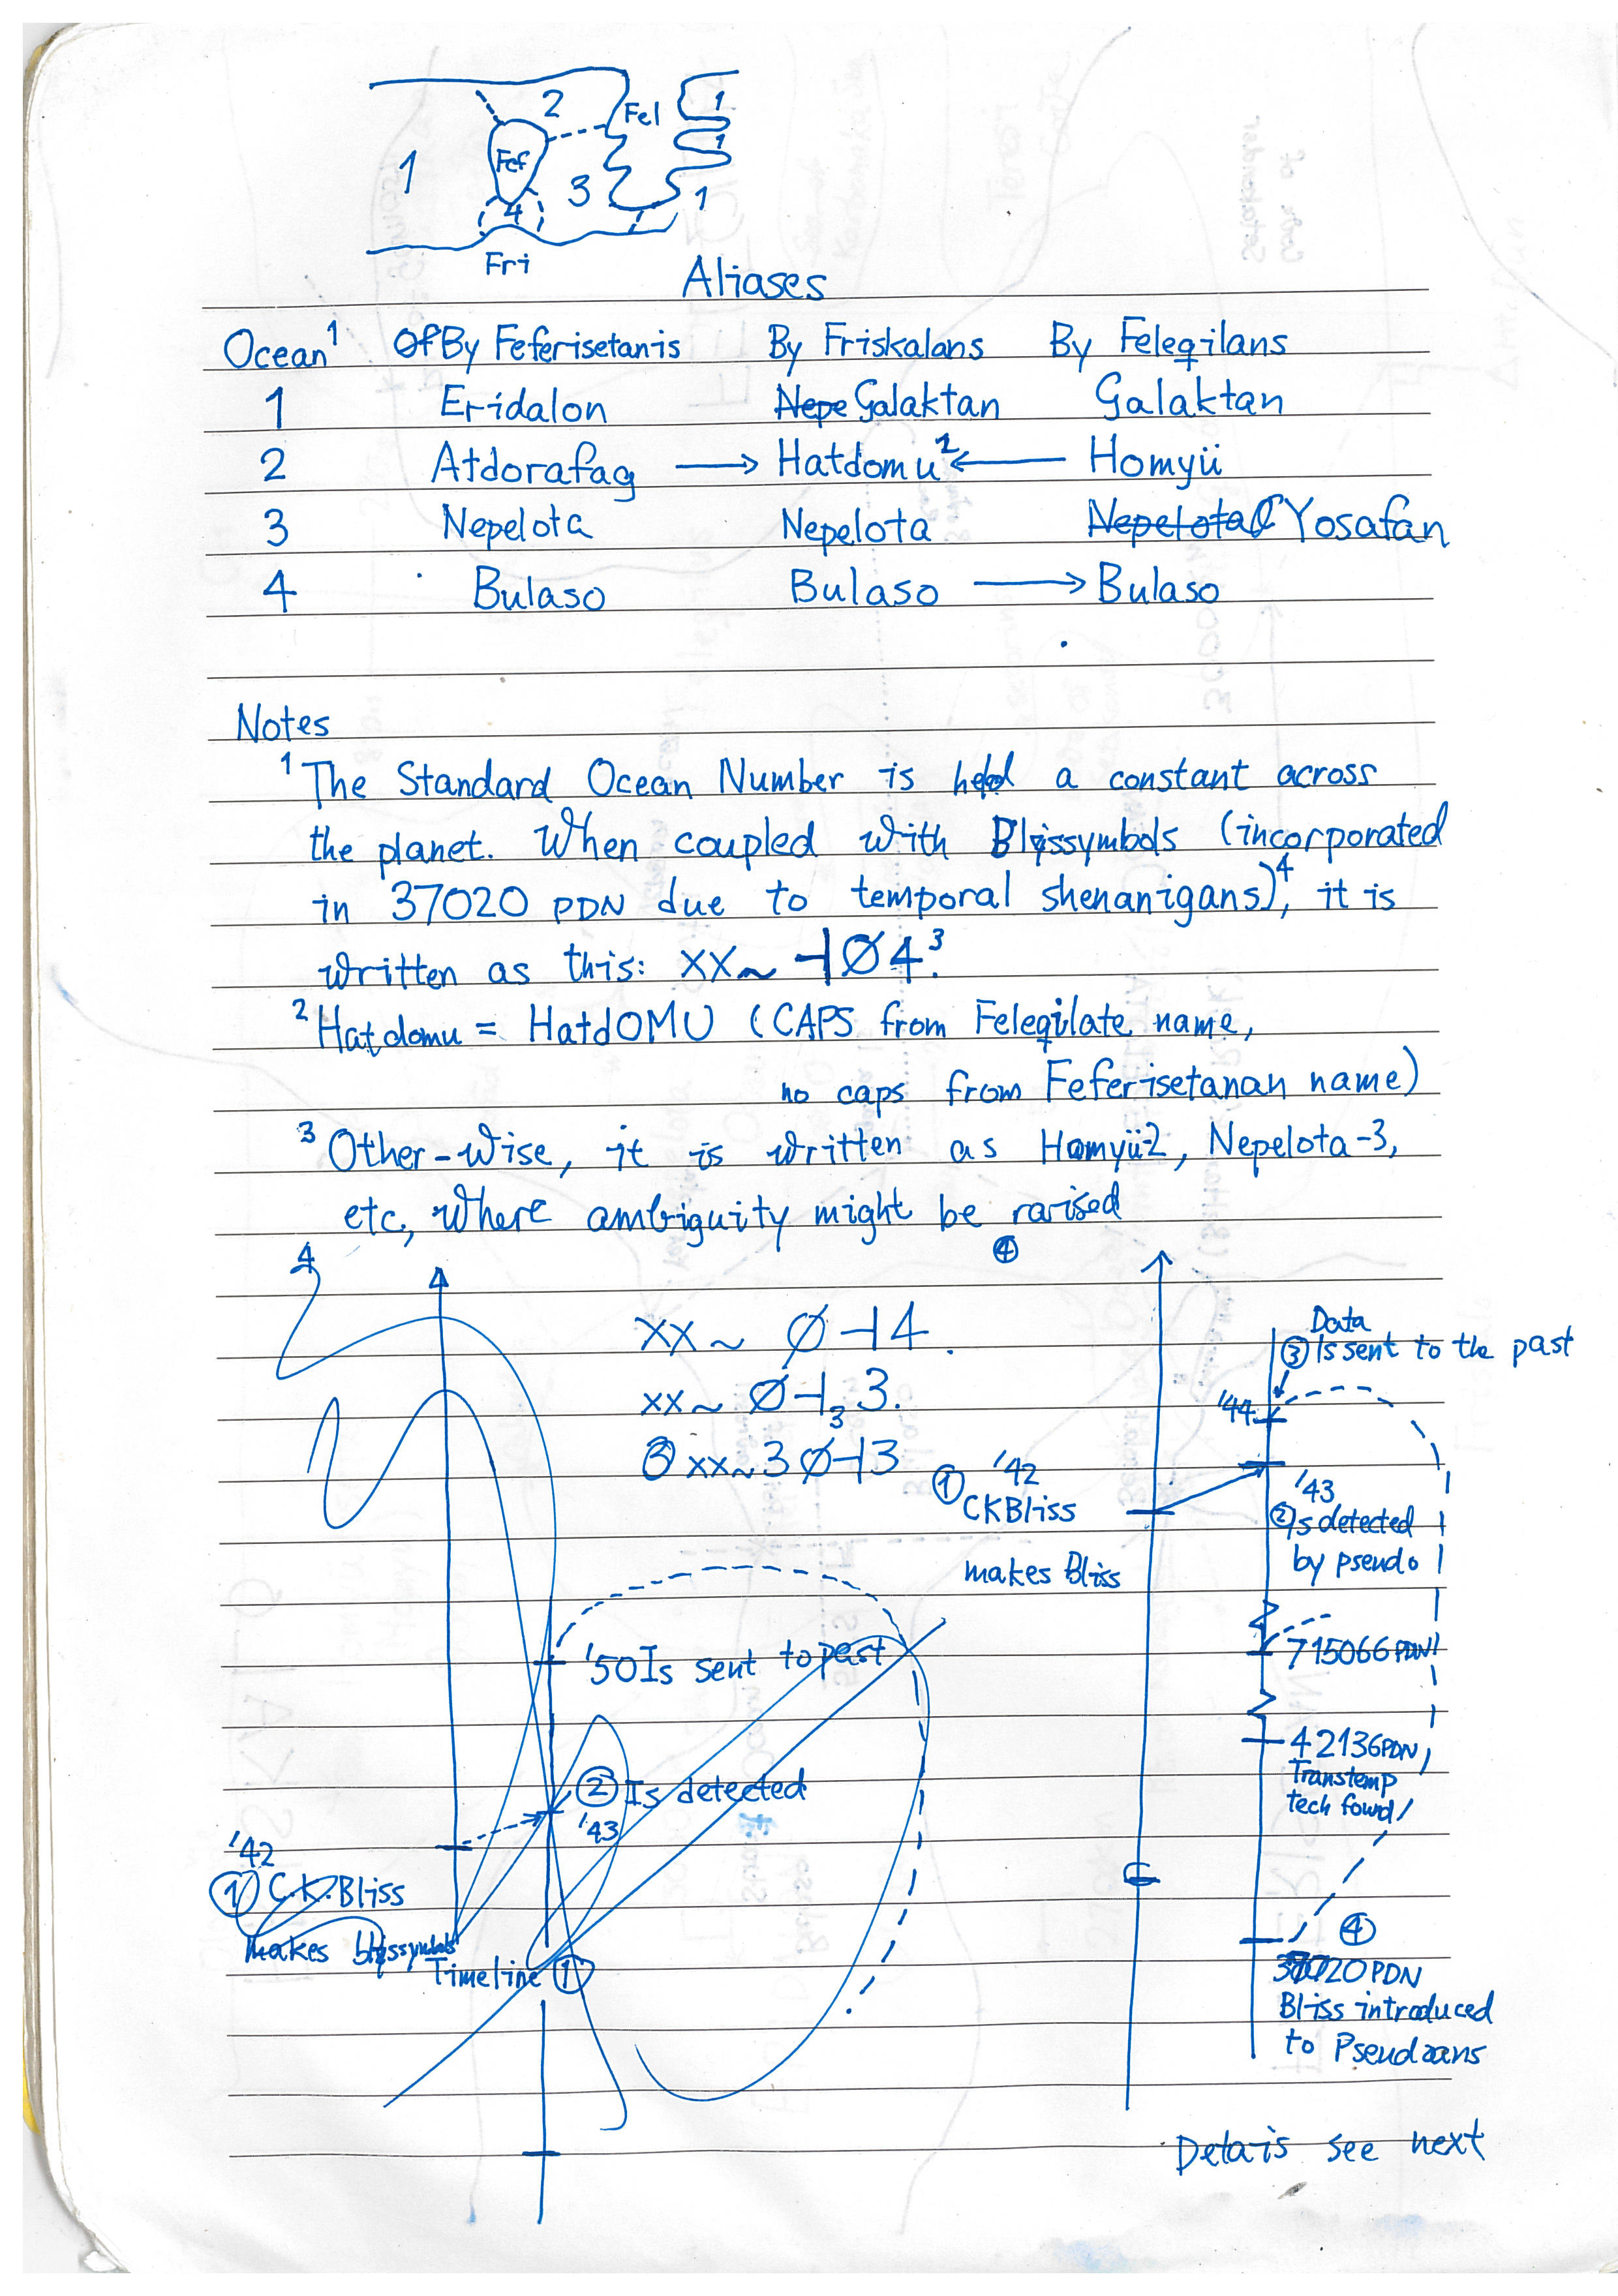 2
Fel
1
1
Fef
1
3
1
4
Fri
Aliases
Ocean¹ Of By Feferisetanis By Friskalans By Felegilans
1 Eridalon Nepe Galaktan Galaktan
2 Atdorafag → Hatdomu² ← Homyü
3 Nepelota Nepelota Nepelota Yosafan
4 Bulaso Bulaso → Bulaso
Notes
¹ The Standard Ocean Number is held a constant across
the planet. When coupled with Blissymbols (incorporated
in 37020 PDN due to temporal shenanigans)⁴, it is
written as this: xx~ ⊣Ø4³.
² Hatdomu = HatdOMU (CAPS from Felegilate name,
no caps from Feferisetanan name)
³ Other-wise, it is written as Homyü2, Nepelota-3,
etc, where ambiguity might be raised
4
④
xx~ Ø⊣4.
xx~ Ø⊣₃3.
③ xx~3Ø⊣3
'50 Is sent to past
② Is detected
'43
'42
① C.K. Bliss
makes blissymbols
Timeline ①
Data
③ Is sent to the past
'44
① '42
CKBliss
makes Bliss
'43
② Is detected
by pseudo
715066 PDN
42136 PDN
Transtemp
tech found
④
37020 PDN
Bliss introduced
to Pseudoans
Detais see next